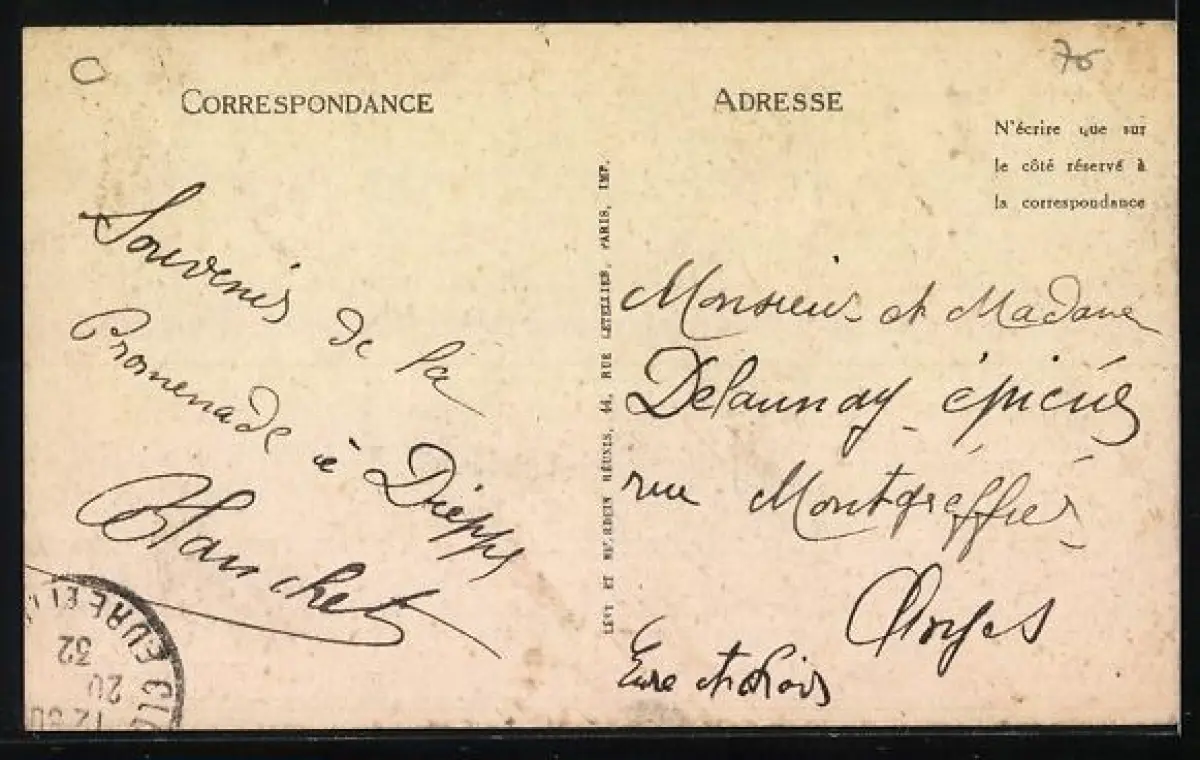 CORRESPONDANCE
Souvenir de la
Promenade à Dieppe
Blanchet
LÉVY ET NEURDEIN RÉUNIS, 44, RUE LETELLIER, PARIS, IMP.
ADRESSE
N'écrire que sur
le côté réservé à
la correspondance
Monsieur et Madame
Delaunay épicier
rue
Cloyes
Eure et Loir
EURE ET
32
20